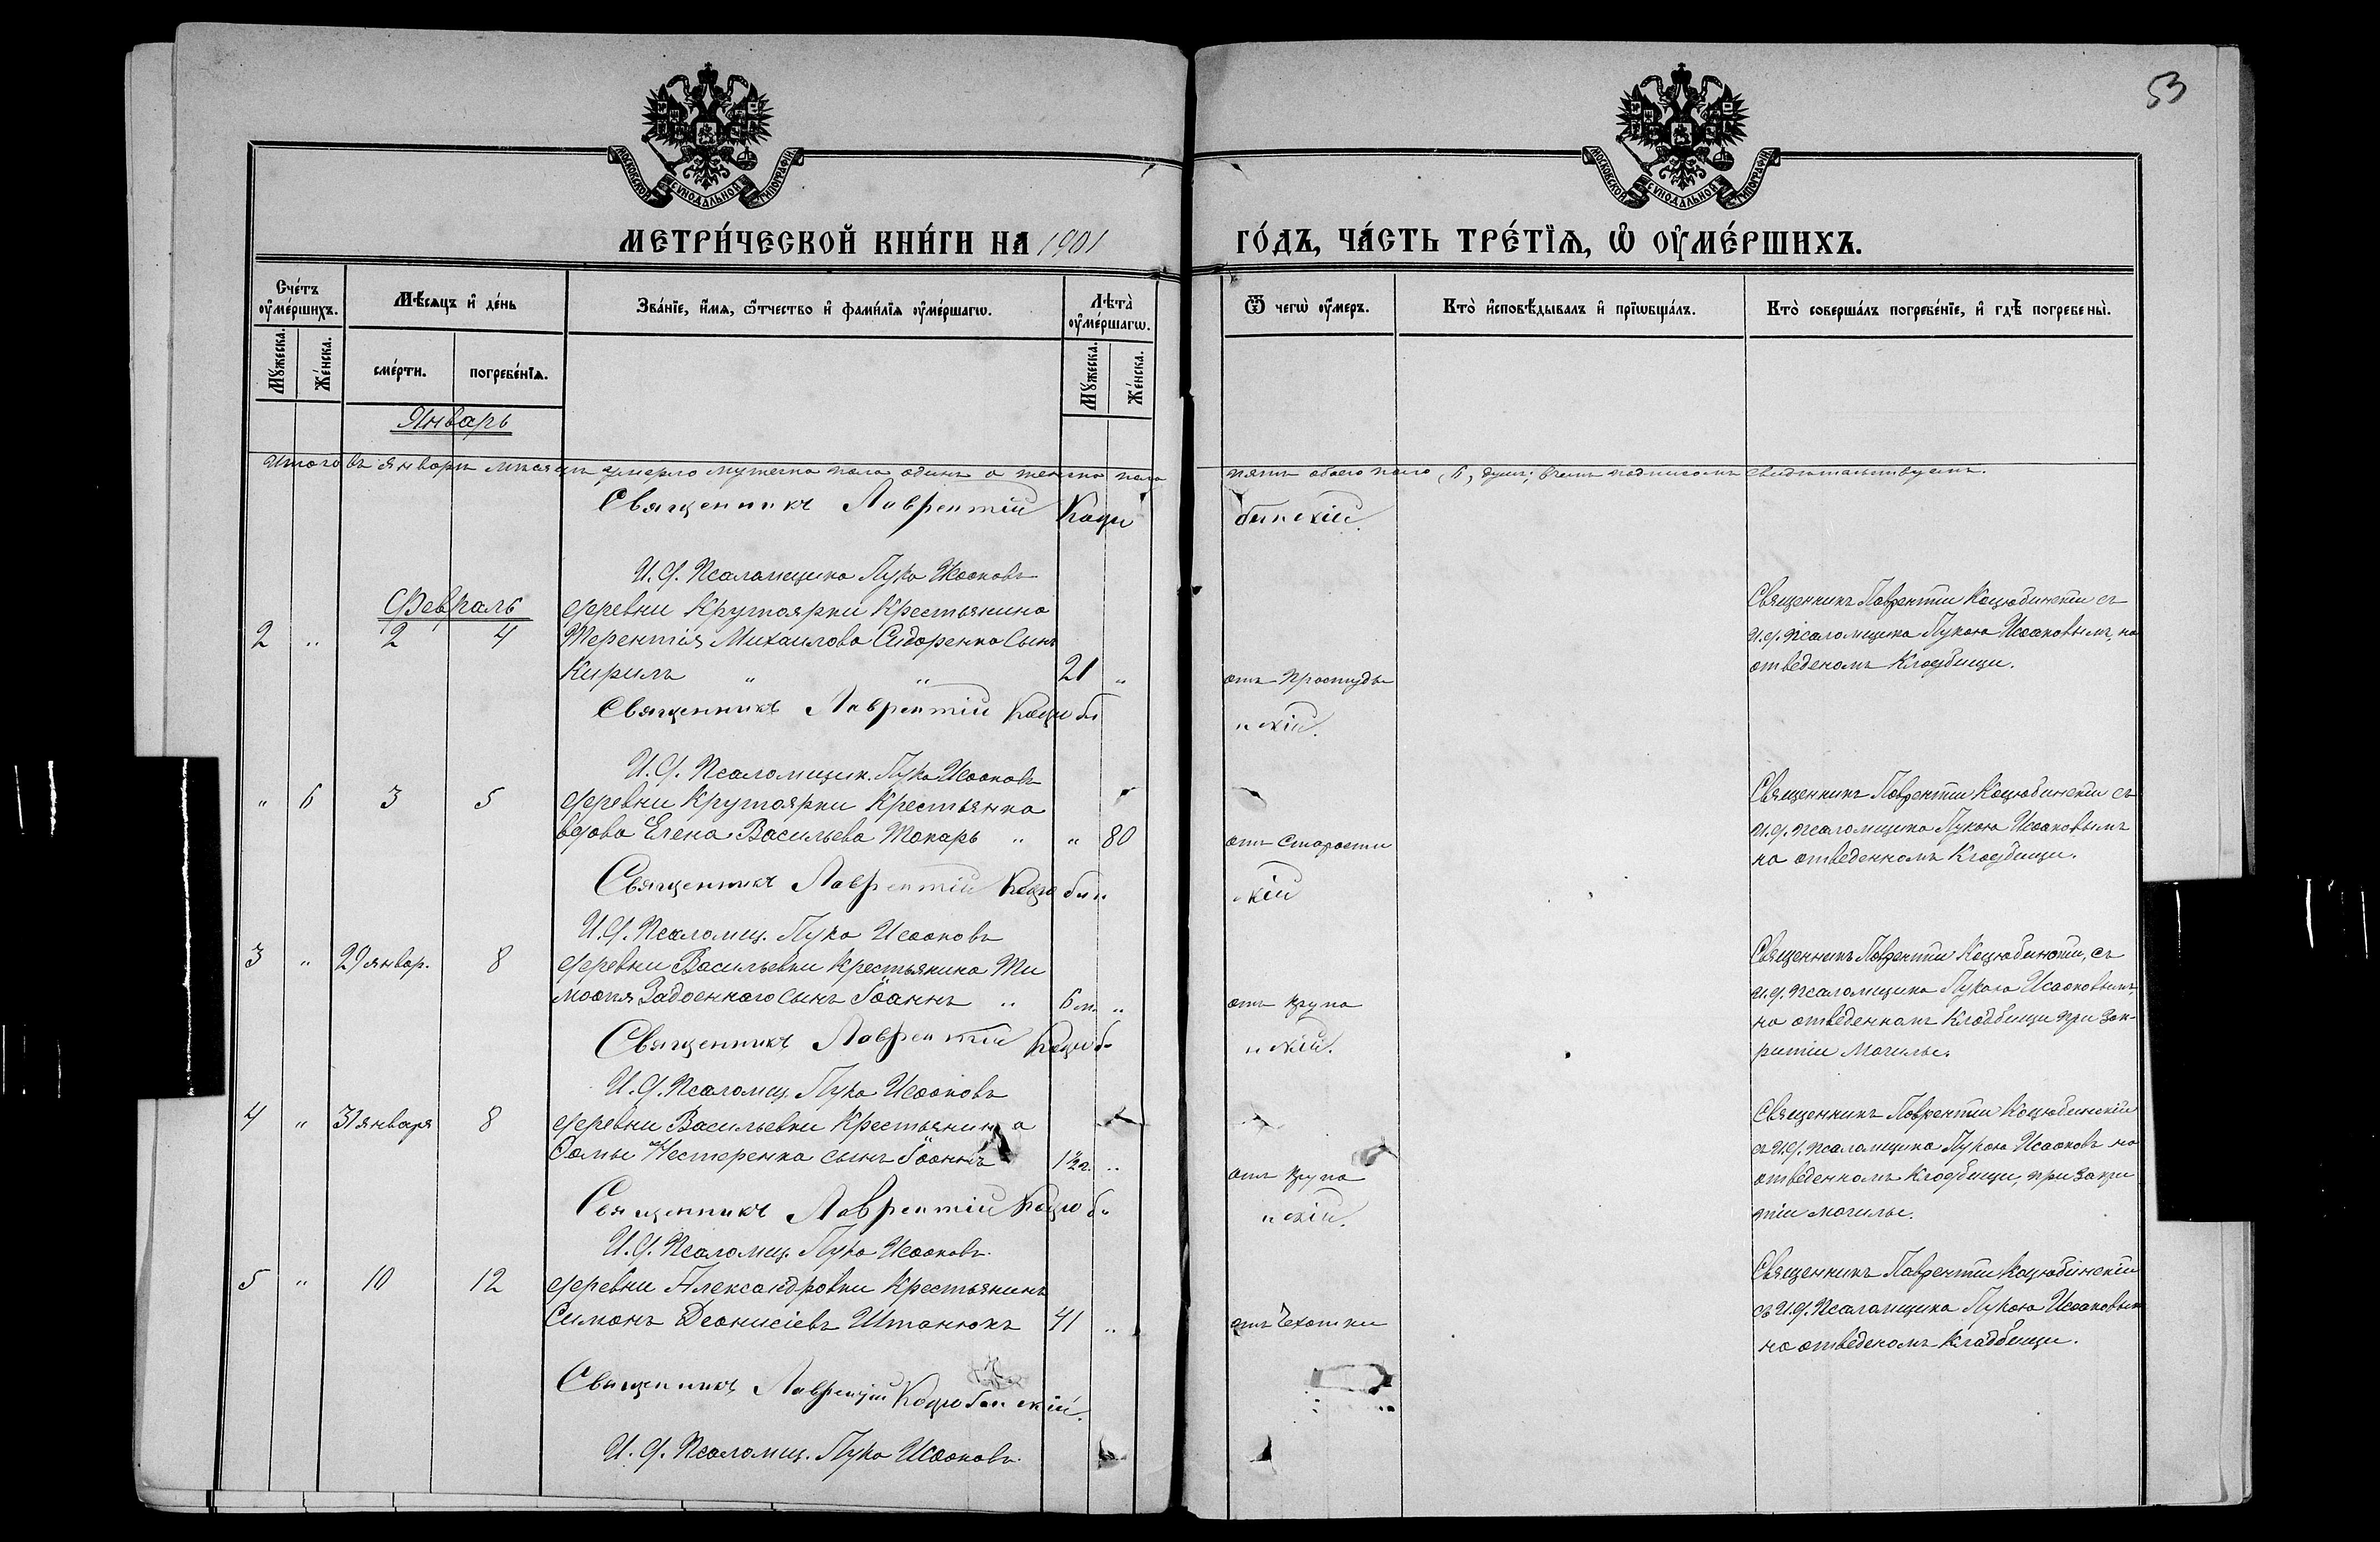 53
МОСКОВСКОЙ СѴНОДАЛЬНОЙ ТИПОГРАФІИ
МОСКОВСКОЙ СѴНОДАЛЬНОЙ ТИПОГРАФІИ
МЕТРИ́ЧЕСКОЙ КНИ́ГИ НА 1901 ГО́ДЪ, ЧА́СТЬ ТРЕ́ТЇѦ, Ѡ҆ ОУ҆МЕ́РШИХЪ.
Сче́тъ оу҆ме́ршихъ.
Мѣ́сяцъ и҆ де́нь
Зва́нїе, и҆́мя, ѻ҆́тчество и҆ фами́лїя оу҆ме́ршагѡ.
Лѣ́та оу҆ме́ршагѡ.
Ѿ чегѡ̀ оу҆́меръ.
Кто̀ и҆сповѣ́дывалъ и҆ прїѡбща́лъ.
Кто̀ соверша́лъ погребе́нїе, и҆ гдѣ̀ погребены̀.
Мꙋ́жеска.
Же́нска.
сме́рти.
погребе́нїѧ.
Мꙋ́жеска.
Же́нска.
Январь
Итого въ январѣ мѣсяцѣ умерло мужеска пола одинъ а женска пола пять обоего пола, 6, душъ; въ чемъ подписомъ свидѣтельствуемъ.
Священникъ Лаврентій Коцюбинскій.
И. д. Псаломщика Лука Исааковъ
Февраль
2 " 2 4
деревни Крутоярки Крестьянина
Терентія Михаилова Сидоренко Сынъ
Кирилъ " " 21 "
отъ простуды
Священникъ Лаврентіи Коцюбинскіи съ
и. д. псаломщика Лукою Исааковымъ, на
отведеномъ Кладбищи.
Священникъ Лаврентій Коцюбинскій.
И. д. Псаломщик. Лука Исааковъ
" 6 3 5
деревни Крутоярки Крестьянка
вдова Елена Васильева Токарь " " 80
отъ Старости
Священникъ Лаврентіи Коцюбинскіи съ
и. д. псаломщика Лукою Исааковымъ
на отведенномъ Кладбищи.
Священникъ Лаврентій Коцюбинскій
И. д. Псаломщ. Лука Исааковъ
3 " 29 январ. 8
деревни Васильевки Крестьянина Ти
моѳея Задоенного сынъ Іоаннъ " 6 м. "
отъ крупа
Священникъ Лаврентіи Коцюбинскіи, съ
и. д. псаломщика Лукою Исааковымъ,
на отведенномъ Кладбищи при зак-
ритіи могилы.
Священникъ Лаврентій Коцюбинскій.
И. д. Псаломщ. Лука Исааковъ
4 " 31 января 8
деревни Васильевки Крестьянина
Нестеренка сынъ Іоаннъ 1½ г. "
отъ крупа
Священникъ Лаврентіи Коцюбинскіи
съ И. д. псаломщика Лукою Исааковъ на
отведенномъ Кладбищи, при закри
тіи могилы.
Священникъ Лаврентій Коцюбинскій.
И. д. Псаломщ. Лука Исааковъ.
5 " 10 12
деревни Александровки Крестьянинъ
Симонъ Деонисіевъ Штанюкъ 41 "
отъ Чахотки
Священникъ Лаврентіи Коцюбинскіи
съ И. д. Псаломщика Лукою Исааковым
на отведеномъ Кладбищи.
Священникъ Лаврентій Коцюбинскій.
И. д. Псаломщ. Лука Исааковъ.